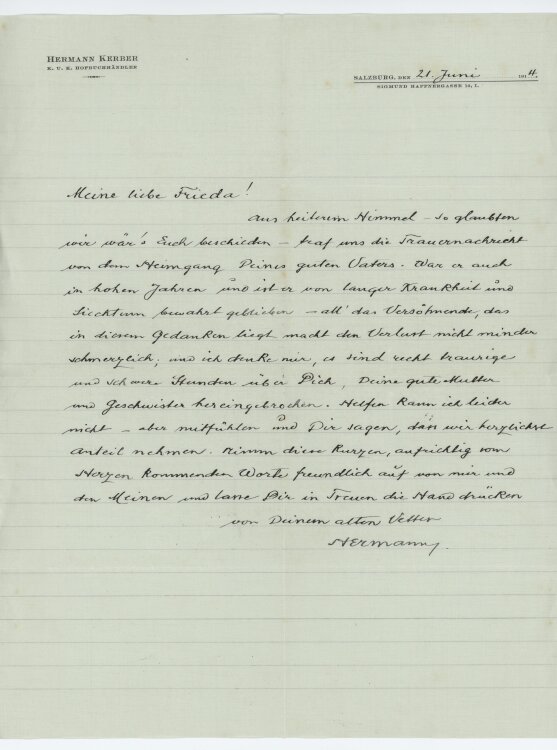 HERMANN KERBER
K. U. K. HOFBUCHHÄNDLER
SALZBURG, DEN 21. Juni 1914.
SIGMUND HAFFNERGASSE 10, I.
Meine liebe Frieda!
Aus heiterem Himmel – so glaubten
wir wär's Euch beschieden – traf uns die Trauernachricht
von dem Heimgang Deines guten Vaters. War er auch
in hohen Jahren und ist er von langer Krankheit und
Siechtum bewahrt geblieben – all' das Versöhnende, das
in diesem Gedanken liegt macht den Verlust nicht minder
schmerzlich; und ich denke mir, es sind recht traurige
und schwere Stunden über Dich, Deine gute Mutter
und Geschwister hereingebrochen. Helfen kann ich leider
nicht – aber mitfühlen und Dir sagen, daß wir herzlichst
Anteil nehmen. Nimm diese kurzen, aufrichtig vom
Herzen kommenden Worte freundlich auf von mir und
den Meinen und lasse Dir in Treuen die Hand drücken
von Deinem alten Vetter
Hermann.